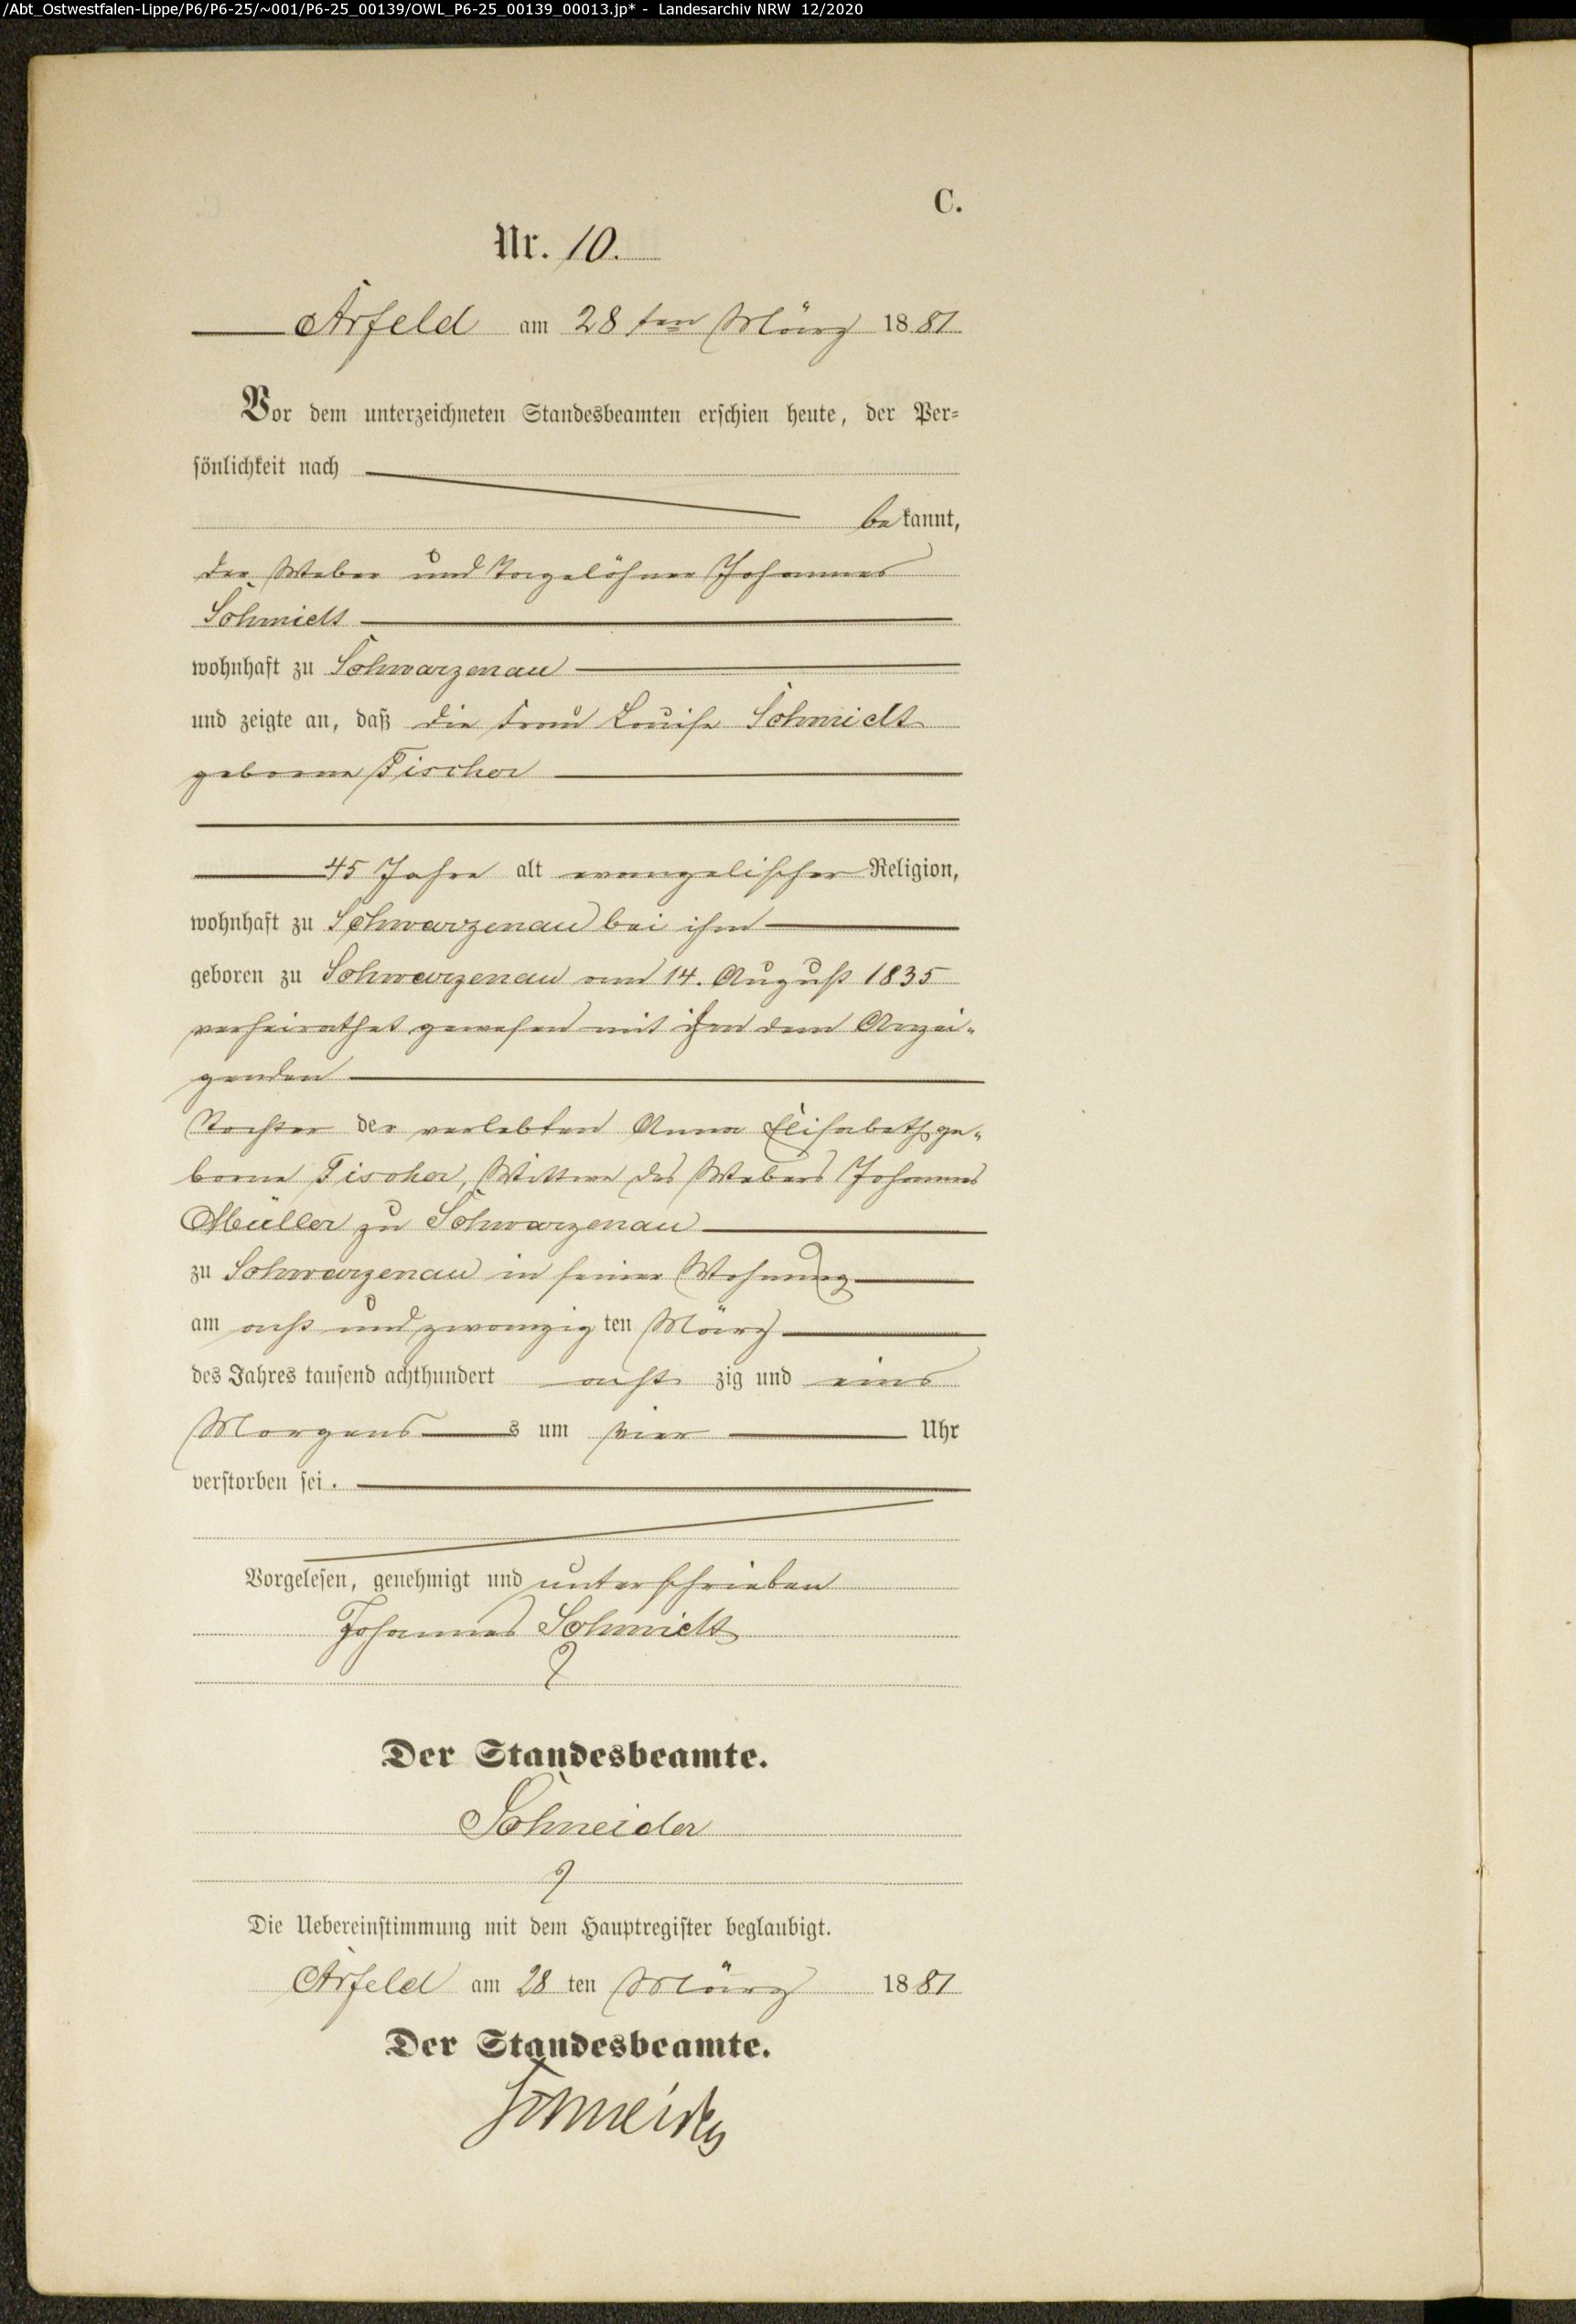 /Abt_Ostwestfalen-Lippe/P6/P6-25/~001/P6-25_00139/OWL_P6-25_00139_00013.jp* - Landesarchiv NRW 12/2020
C.
Nr. 10.
Arfeld am 28 ten März 1881
Vor dem unterzeichneten Standesbeamten erschien heute, der Per-
sönlichkeit nach
bekannt,
der Weber und Tagelöhner Johannes
Schmidt
wohnhaft zu Schwarzenau
und zeigte an, daß die Frau Louise Schmidt
geborne Fischer
45 Jahre alt evangelischer Religion,
wohnhaft zu Schwarzenau bei ihm
geboren zu Schwarzenau am 14. August 1835
verheirathet gewesen mit ihm dem Anzei-
genden
Tochter der verlebten Anna Elisabeth ge-
borne Fischer, Wittwe des Webers Johannes
Müller zu Schwarzenau
zu Schwarzenau in seiner Wohnung
am acht und zwanzig ten März
des Jahres tausend achthundert acht zig und eins
Morgens s um vier Uhr
verstorben sei.
Vorgelesen, genehmigt und unterschrieben
Johannes Schmidt
Der Standesbeamte.
Schneider
Die Uebereinstimmung mit dem Hauptregister beglaubigt.
Arfeld am 28 ten März 1881
Der Standesbeamte.
Schneider